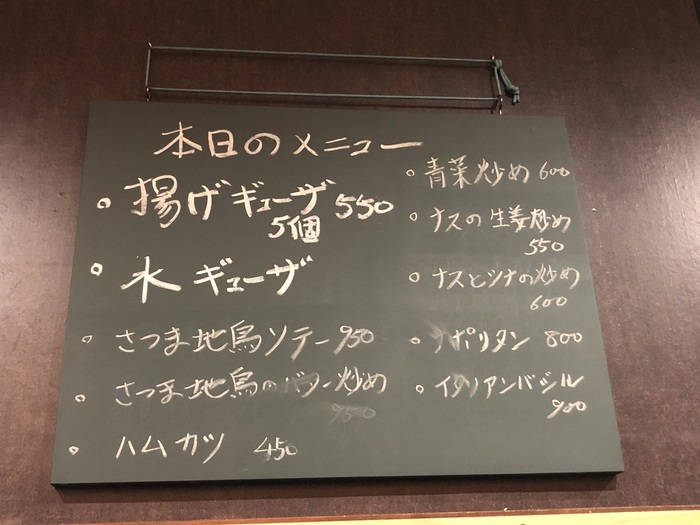 本日のメニュー
。揚げギューザ 550
5個
。水ギューザ
。さつま地鳥ソテー 950
。さつま地鳥のバター炒め
950
。ハムカツ 450
。青菜炒め 600
。ナスの生姜炒め
550
。ナスとツナの炒め
600
。ナポリタン 800
。イタリアンバジル
900